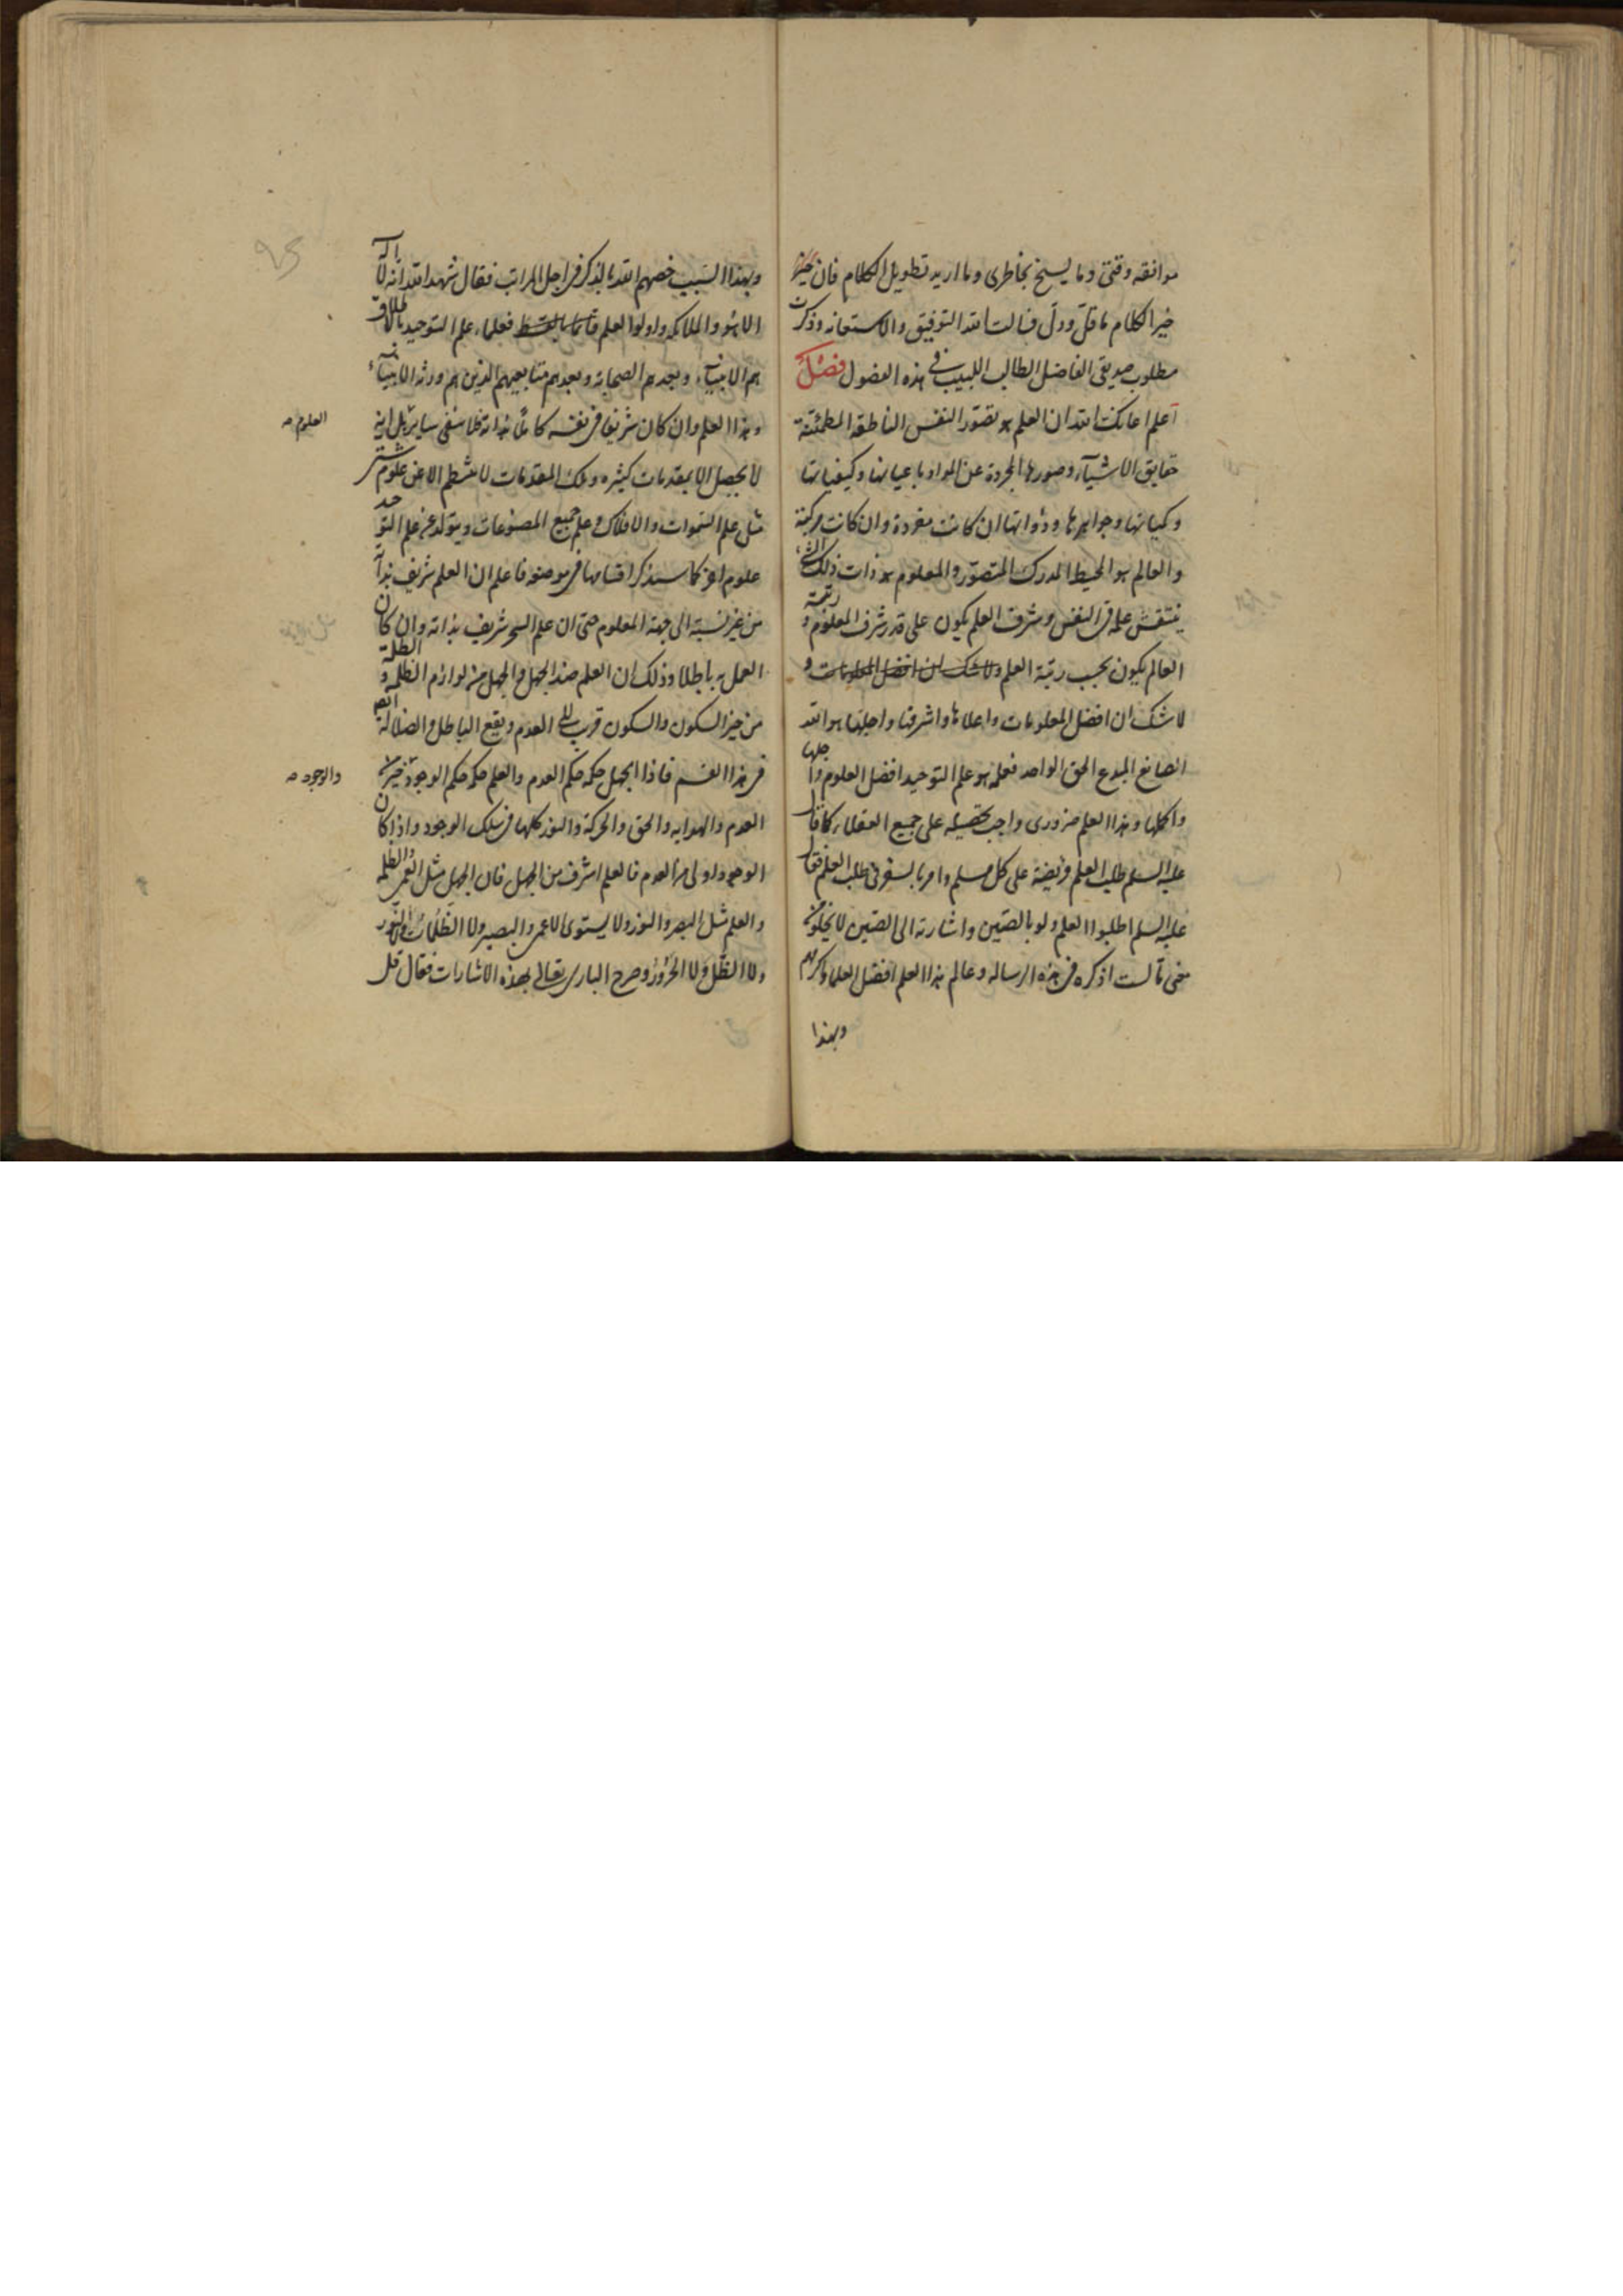 موافقه وقتى وما يسنح بخاطرى وما اريد تطويل الكلام فان خير
خير الكلام ما قل ودل فسالت الله التوفيق والاستعانه وذكرت
مطلوب صديقى الفاضل الطالب اللبيب فى هذه الفصول فصل
اعلم اعانك الله ان العلم هو تصور النفس الناطقه المطمئنة
حقايق الاشيآء وصورها المجردة عن المواد باعيانها وكيفياتها
وكمياتها وجواهرها وذواتها ان كانت مفردة وان كانت مركبة
والعالم هو المحيط المدرك المتصور والمعلوم هو ذات ذلك الشئ
ينتقش علمه فى النفس وشرف العلم يكون على قدر شرف المعلوم ورتبة
العالم يكون بحسب رتبة العلم ولا شك ان افضل المعلومات و
لا شك ان افضل المعلومات واعلاها واشرفها واجلها هو الله
الصانع المبدع الحق الواحد فعلمه هو علم التوحيد افضل العلوم واجلها
واكملها وهذا العلم ضرورى واجب تحصيله على جميع العقلاء كما قال
عليه السلم طلب العلم فريضة على كل مسلم وامر بالسفر فى طلب العلم فقال
عليه السلم اطلبوا العلم ولو بالصين واشارته الى الصين لا يخلو من
معنى لست اذكره فى هذه الرساله وعالم هذا العلم افضل العلما واكرمهم
وبهذا
وبهذا السبب خصهم الله بالذكر فى اجل المراتب فقال شهد الله انه لا اله
الا هو والملائكه واولوا العلم قائما بالقسط فعلماء علم التوحيد بالاطلاق
هم الانبيآء وبعدهم الصحابة وبعدهم متابعيهم الذين هم ورثة الانبيآء
وهذا العلم وان كان شريفا فى نفسه كاملا بذاته فلا ينفى ساير بل انه
العلوم صح
لا يحصل الا بمقدمات كثيره وتلك المقدمات لا تنتظم الا عن علوم شتى
مثل علم السموات والافلاك وعلم جميع المصنوعات ويتولد عن علم التوحيد
علوم اخر كما سنذكر اقسامها فى موضعه فاعلم ان العلم شريف بذاته
من غير نسبة الى جهة المعلوم حتى ان علم السحر شريف بذاته وان كان
العمل به باطلا وذلك ان العلم ضد الجهل والجهل من لوازم الظلمة والظلمة
من حيز السكون والسكون قريب الى العدم ويقع الباطل والضلالة
فى هذا القسم فاذا الجهل حكمه حكم العدم والعلم حكمه حكم الوجود خير من
والوجود صح
العدم والهدايه والحق والحركة والنور كلها فى سلك الوجود واذا كان
الوجود اولى من العدم فالعلم اشرف من الجهل فان الجهل مثل العمى والظلمه
والعلم مثل البصر والنور ولا يستوى الاعمى والبصير ولا الظلمات ولا النور
ولا الظل ولا الحرور وصرح البارى تعالى بهذه الاشارات فقال قل